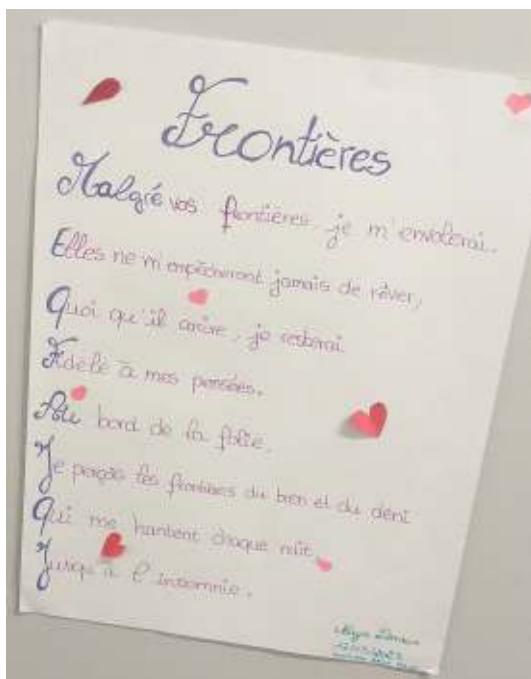 Frontières
Malgré vos frontières, je m'envolerai.
Elles ne m'empêcheront jamais de rêver,
Quoi qu'il arrive, je resterai
Fidèle à mes pensées.
Au bord de la folie,
Je perçois les frontières du bien et du déni
Qui me hantent chaque nuit
Jusqu'à l'insomnie.